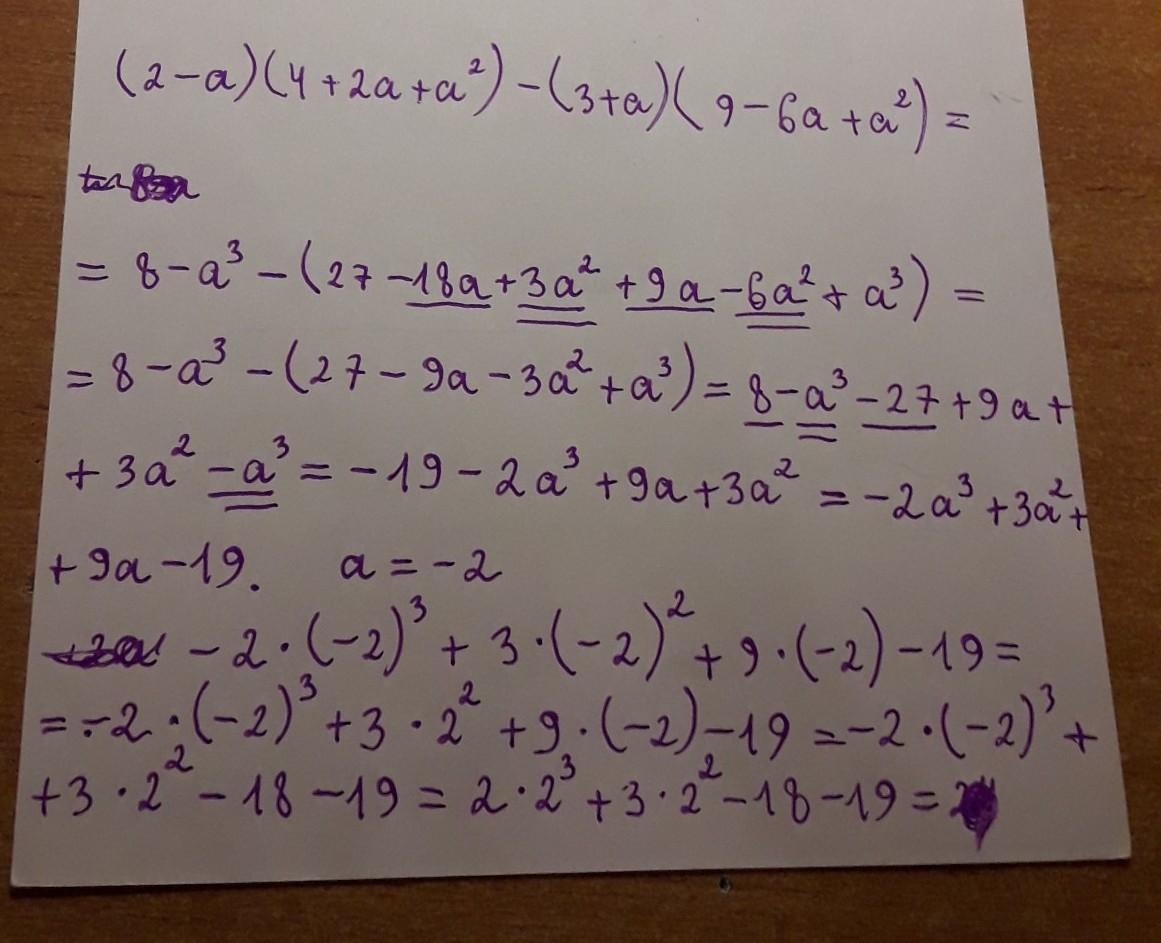 (2-a)(4+2a+a²)-(3+a)(9-6a+a²)=
= 8-a³-(27-18a+3a²+9a-6a²+a³)=
= 8-a³-(27-9a-3a²+a³)=8-a³-27+9a+
+3a²-a³=-19-2a³+9a+3a²=-2a³+3a²+
+9a-19. a=-2
-2·(-2)³+3·(-2)²+9·(-2)-19=
=-2·(-2)³+3·2²+9·(-2)-19=-2·(-2)³+
+3·2²-18-19=2·2³+3·2²-18-19=